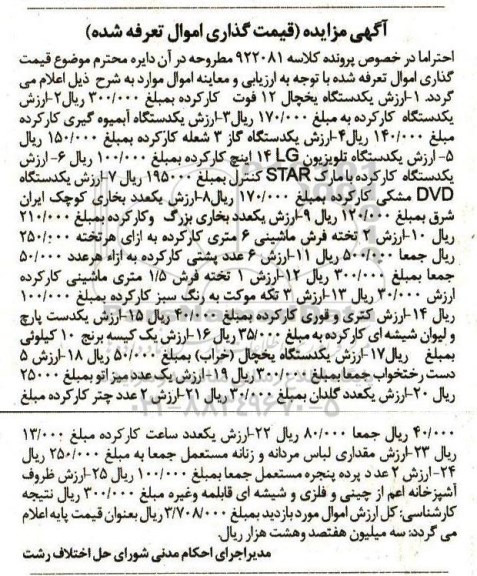 آگهی مزایده (قیمت گذاری اموال تعرفه شده)
احتراما در خصوص پرونده کلاسه ۹۲۲۰۸۱ مطروحه در آن دایره محترم موضوع قیمت
گذاری اموال تعرفه شده با توجه به ارزیابی و معاینه اموال موارد به شرح ذیل اعلام می
گردد. ۱-ارزش یکدستگاه یخچال ۱۲ فوت کارکرده بمبلغ ۳۰۰/۰۰۰ ریال ۲-ارزش
یکدستگاه کارکرده به مبلغ ۱۷۰/۰۰۰ ریال ۳-ارزش یکدستگاه آبمیوه گیری کارکرده
مبلغ ۱۴۰/۰۰۰ ریال ۴-ارزش یکدستگاه گاز ۳ شعله کارکرده بمبلغ ۱۵۰/۰۰۰ ریال
۵- ارزش یکدستگاه تلویزیون LG ۱۴ اینچ کارکرده بمبلغ ۱۰۰/۰۰۰ ریال ۶- ارزش
یکدستگاه کارکرده با مارک STAR کنترل بمبلغ ۱۹۵۰۰۰ ریال ۷-ارزش یکدستگاه
DVD مشکی کارکرده بمبلغ ۱۷۰/۰۰۰ ریال ۸-ارزش یکعدد بخاری کوچک ایران
شرق بمبلغ ۱۲۰/۰۰۰ ریال ۹-ارزش یکعدد بخاری بزرگ وکارکرده بمبلغ ۲۱۰/۰۰۰
ریال ۱۰-ارزش ۲ تخته فرش ماشینی ۶ متری کارکرده به ازای هرتخته ۲۵۰/۰۰۰
ریال جمعا ۵۰۰/۰۰۰ ریال ۱۱-ارزش ۶ عدد پشتی کارکرده به ازاء هرعدد ۵۰/۰۰۰
جمعا بمبلغ ۳۰۰/۰۰۰ ریال ۱۲-ارزش ۱ تخته فرش ۱/۵ متری ماشینی کارکرده
ارزش ۳۰/۰۰۰ ریال ۱۳-ارزش ۲ تکه موکت به رنگ سبز کارکرده بمبلغ ۱۰۰/۰۰۰
ریال ۱۴-ارزش کتری و قوری کارکرده بمبلغ ۴۰/۰۰۰ ریال ۱۵-ارزش یکدست پارچ
و لیوان شیشه ای کارکرده به مبلغ ۳۵/۰۰۰ ریال ۱۶-ارزش یک کیسه برنج ۱۰ کیلوئی
بمبلغ ریال ۱۷-ارزش یکدستگاه یخچال (خراب) بمبلغ ۵۰/۰۰۰ ریال ۱۸-ارزش ۵
دست رختخواب جمعا بمبلغ ۳۰۰/۰۰۰ ریال ۱۹-ارزش یک عدد میز اتو بمبلغ ۲۵۰۰۰
ریال ۲۰-ارزش یکعدد گلدان بمبلغ ۳۰/۰۰۰ ریال ۲۱-ارزش ۲ عدد چتر کارکرده مبلغ
۴۰/۰۰۰ ریال جمعا ۸۰/۰۰۰ ریال ۲۲-ارزش یکعدد ساعت کارکرده مبلغ ۱۳/۰۰۰
ریال ۲۳-ارزش مقداری لباس مردانه و زنانه مستعمل جمعا به مبلغ ۲۵۰/۰۰۰ ریال
۲۴-ارزش ۲ عدد پرده پنجره مستعمل جمعا بمبلغ ۱۰۰/۰۰۰ ریال ۲۵-ارزش ظروف
آشپزخانه اعم از چینی و فلزی و شیشه ای قابلمه وغیره مبلغ ۳۰۰/۰۰۰ ریال نتیجه
کارشناسی: کل ارزش اموال مورد بازدید بمبلغ ۳/۷۰۸/۰۰۰ ریال بعنوان قیمت پایه اعلام
می گردد: سه میلیون هفتصد وهشت هزار ریال.
مدیراجرای احکام مدنی شورای حل اختلاف رشت
۰۲۱-۸۸۳۴۹۶۷۰-۵